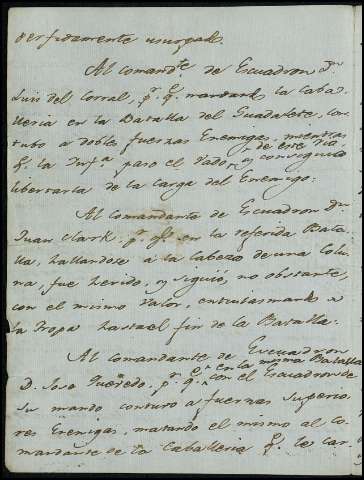 perfidamente usurpado.
Al comand.te de Escuadron D.n
Luis del Corral, p.r q.e mandando la Caba-
lleria en la Batalla del Guadalete, con-
tubo a dobles fuerzas Enemigas, mientras
q.e la Inf.a paso el Vado de este Rio, y consiguió
libertarla de la carga del Enemigo:
Al Comandante de Escuadron D.n
Juan Clark, p.r q.e en la referida Bata-
lla, hallandose a la cabeza de una Colu-
na, fue herido, y siguió, no obstante,
con el mismo Valor, entusiasmando a
la Tropa hasta el fin de la Batalla.
Al Comandante de Escuadron
D. Jose Quevedo, p.r q.e en la misma Batalla con el Escuadron de
su mando contuvo a fuerzas superio-
res Enemigas, matando el mismo al Co-
mandante de la Caballeria q.e le car-